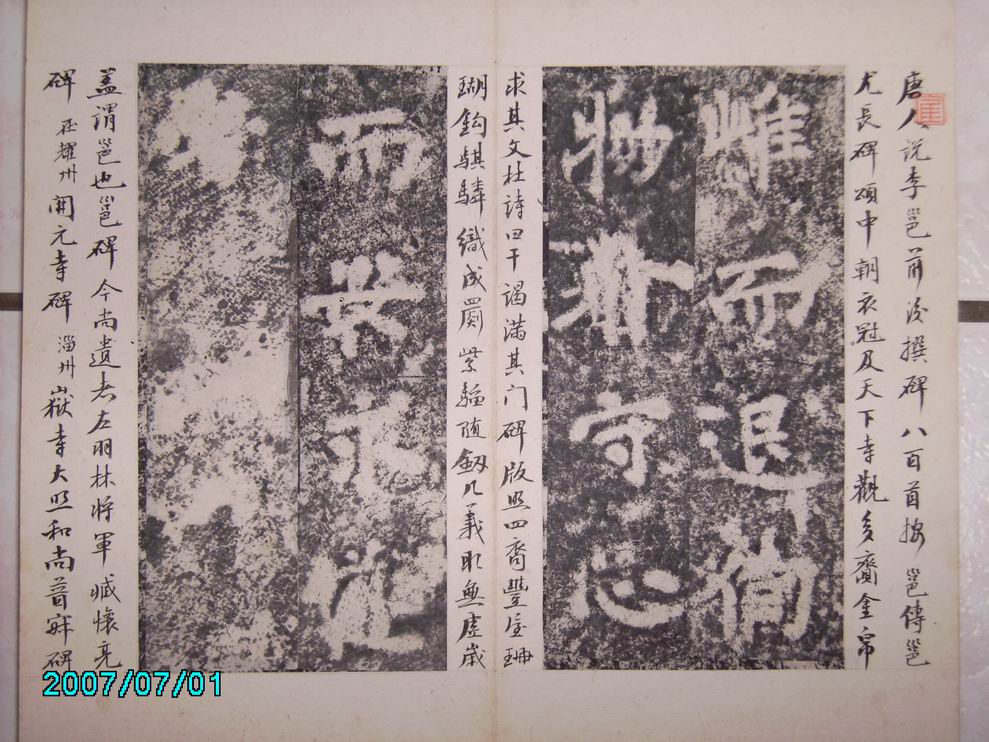 唐人說李邕前後撰碑八百首按邕傳邕
尤長碑頌中朝衣冠及天下寺觀多齎金帛
而退
守
求其文杜詩曰干謁滿其門碑版照四裔豐屋珊
瑚鈎騏驎織成罽紫騮隨劒几義取無虛歲
而
蓋謂邕也邕碑今尚遺者左羽林將軍臧懷亮
碑在耀州開元寺碑淄州嶽寺大照和尚普寂碑
2007/07/01